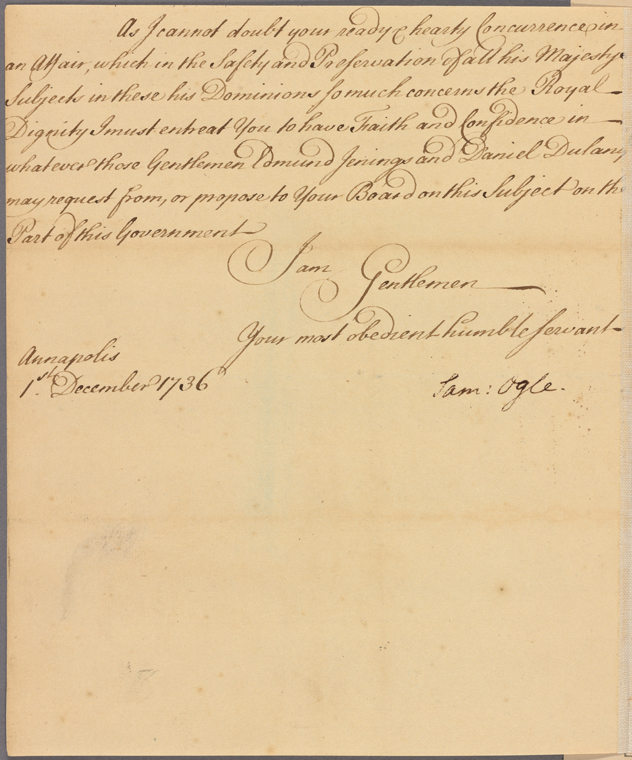 As I cannot doubt your ready & hearty Concurrence in
an Affair, which in the Safety and Preservation of all his Majestys
Subjects in these his Dominions so much concerns the Royal
Dignity I must entreat You to have Fraith and Confidence in
whatever those Gentlemen Edmund Jenings and Daniel Dulany
may request from, or propose to Your Board on this Subject on the
Part of this Government
I am
Gentlemen
Your most obedient humble servant
Annapolis
1st. December 1736
Sam: Ogle.